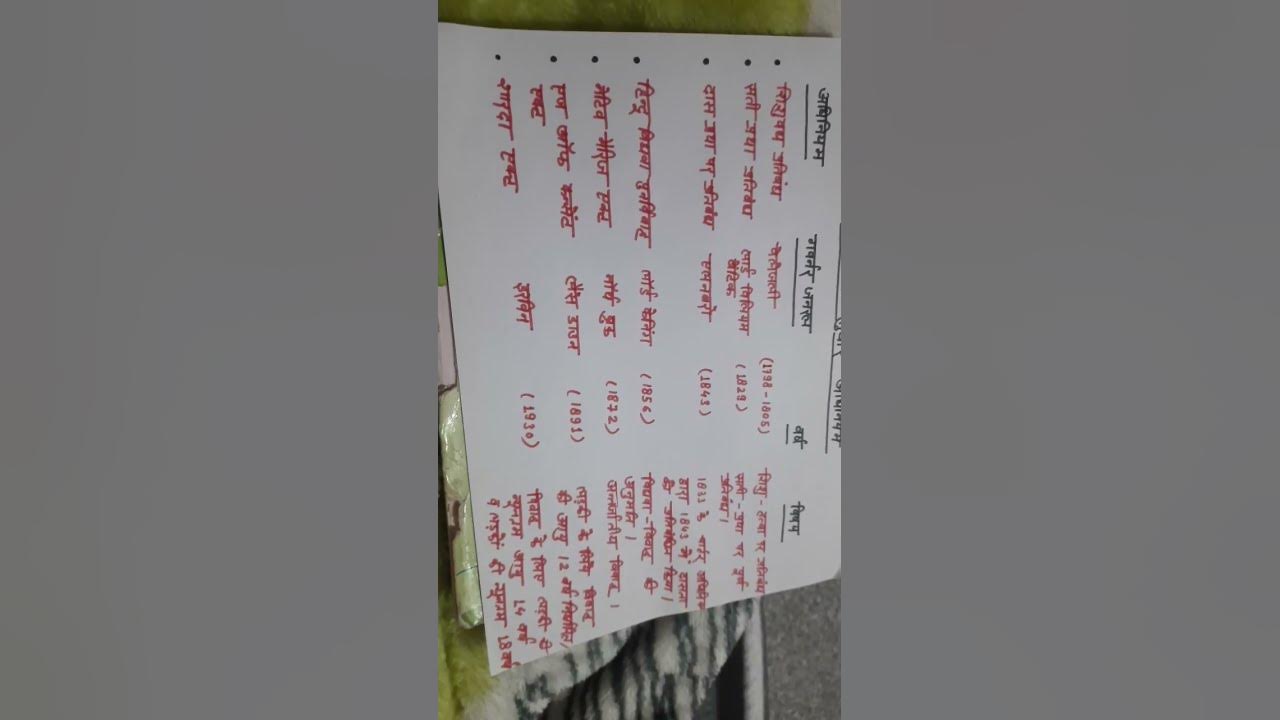 सुधार अधिनियम
अधिनियम गवर्नर जनरल वर्ष विषय
• शिशुवध प्रतिबंध वेलेजली (1798 - 1805) शिशु - हत्या पर प्रतिबंध
• सती प्रथा प्रतिबंध लार्ड विलियम बैंटिक (1829) सती - प्रथा पर पूर्ण प्रतिबंध।
• दास प्रथा पर प्रतिबंध एलनबरो (1843) 1833 के चार्टर अधिनियम द्वारा 1843 में दासता को प्रतिबंधित किया।
• हिन्दू विधवा पुनर्विवाह लार्ड कैनिंग (1856) विधवा - विवाह की अनुमति।
• नेटिव मैरिज एक्ट नार्थ ब्रुक (1872) अन्तर्जातीय विवाह।
• एज ऑफ कन्सेंट एक्ट लैंस डाउन (1891) लड़की के लिये विवाह की आयु 12 वर्ष निर्धारित।
• शारदा एक्ट इरविन (1930) विवाह के लिए लड़की की न्यूनतम आयु 14 वर्ष व लड़कों की न्यूनतम 18 वर्ष